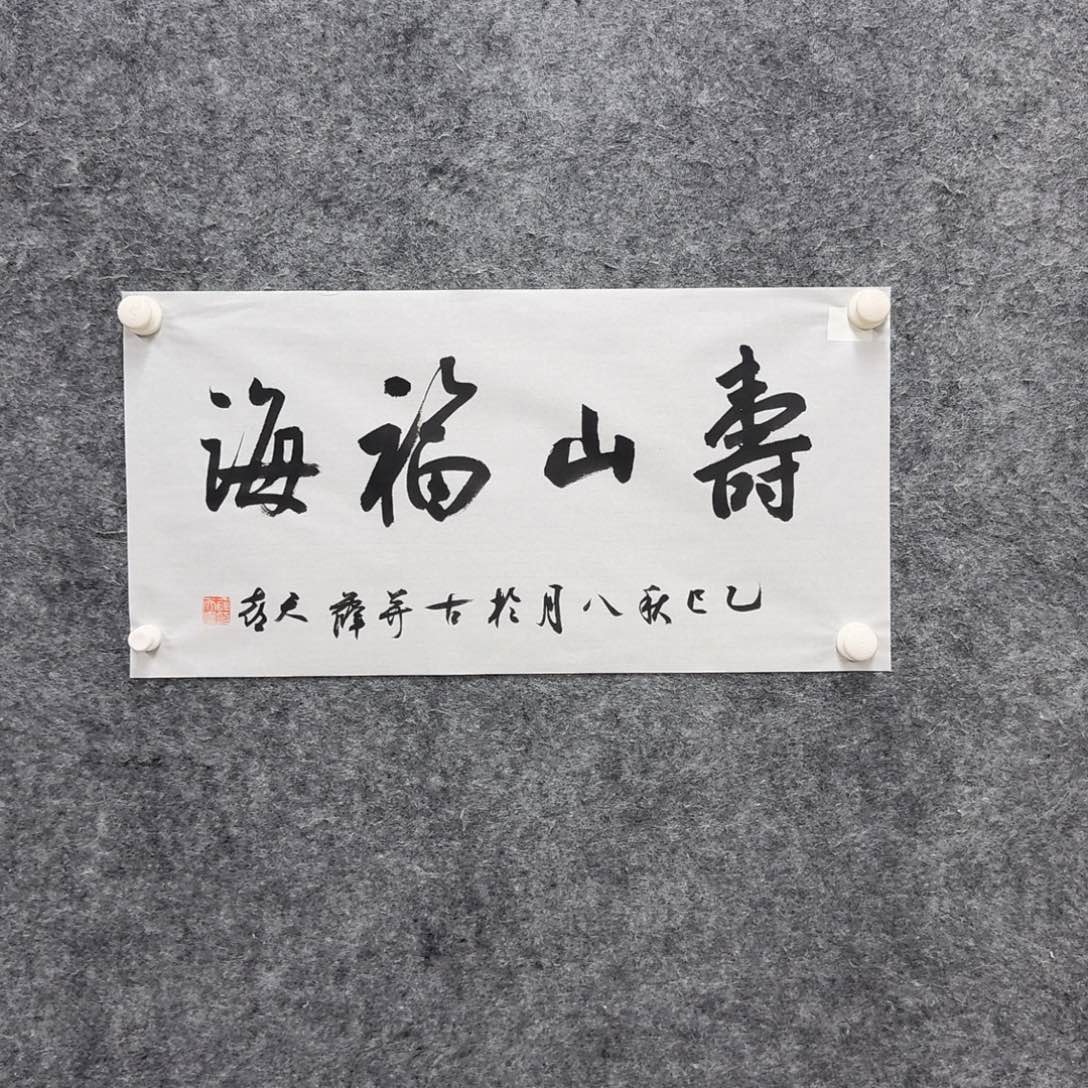 壽山福海
乙巳秋八月於古并薛天喜